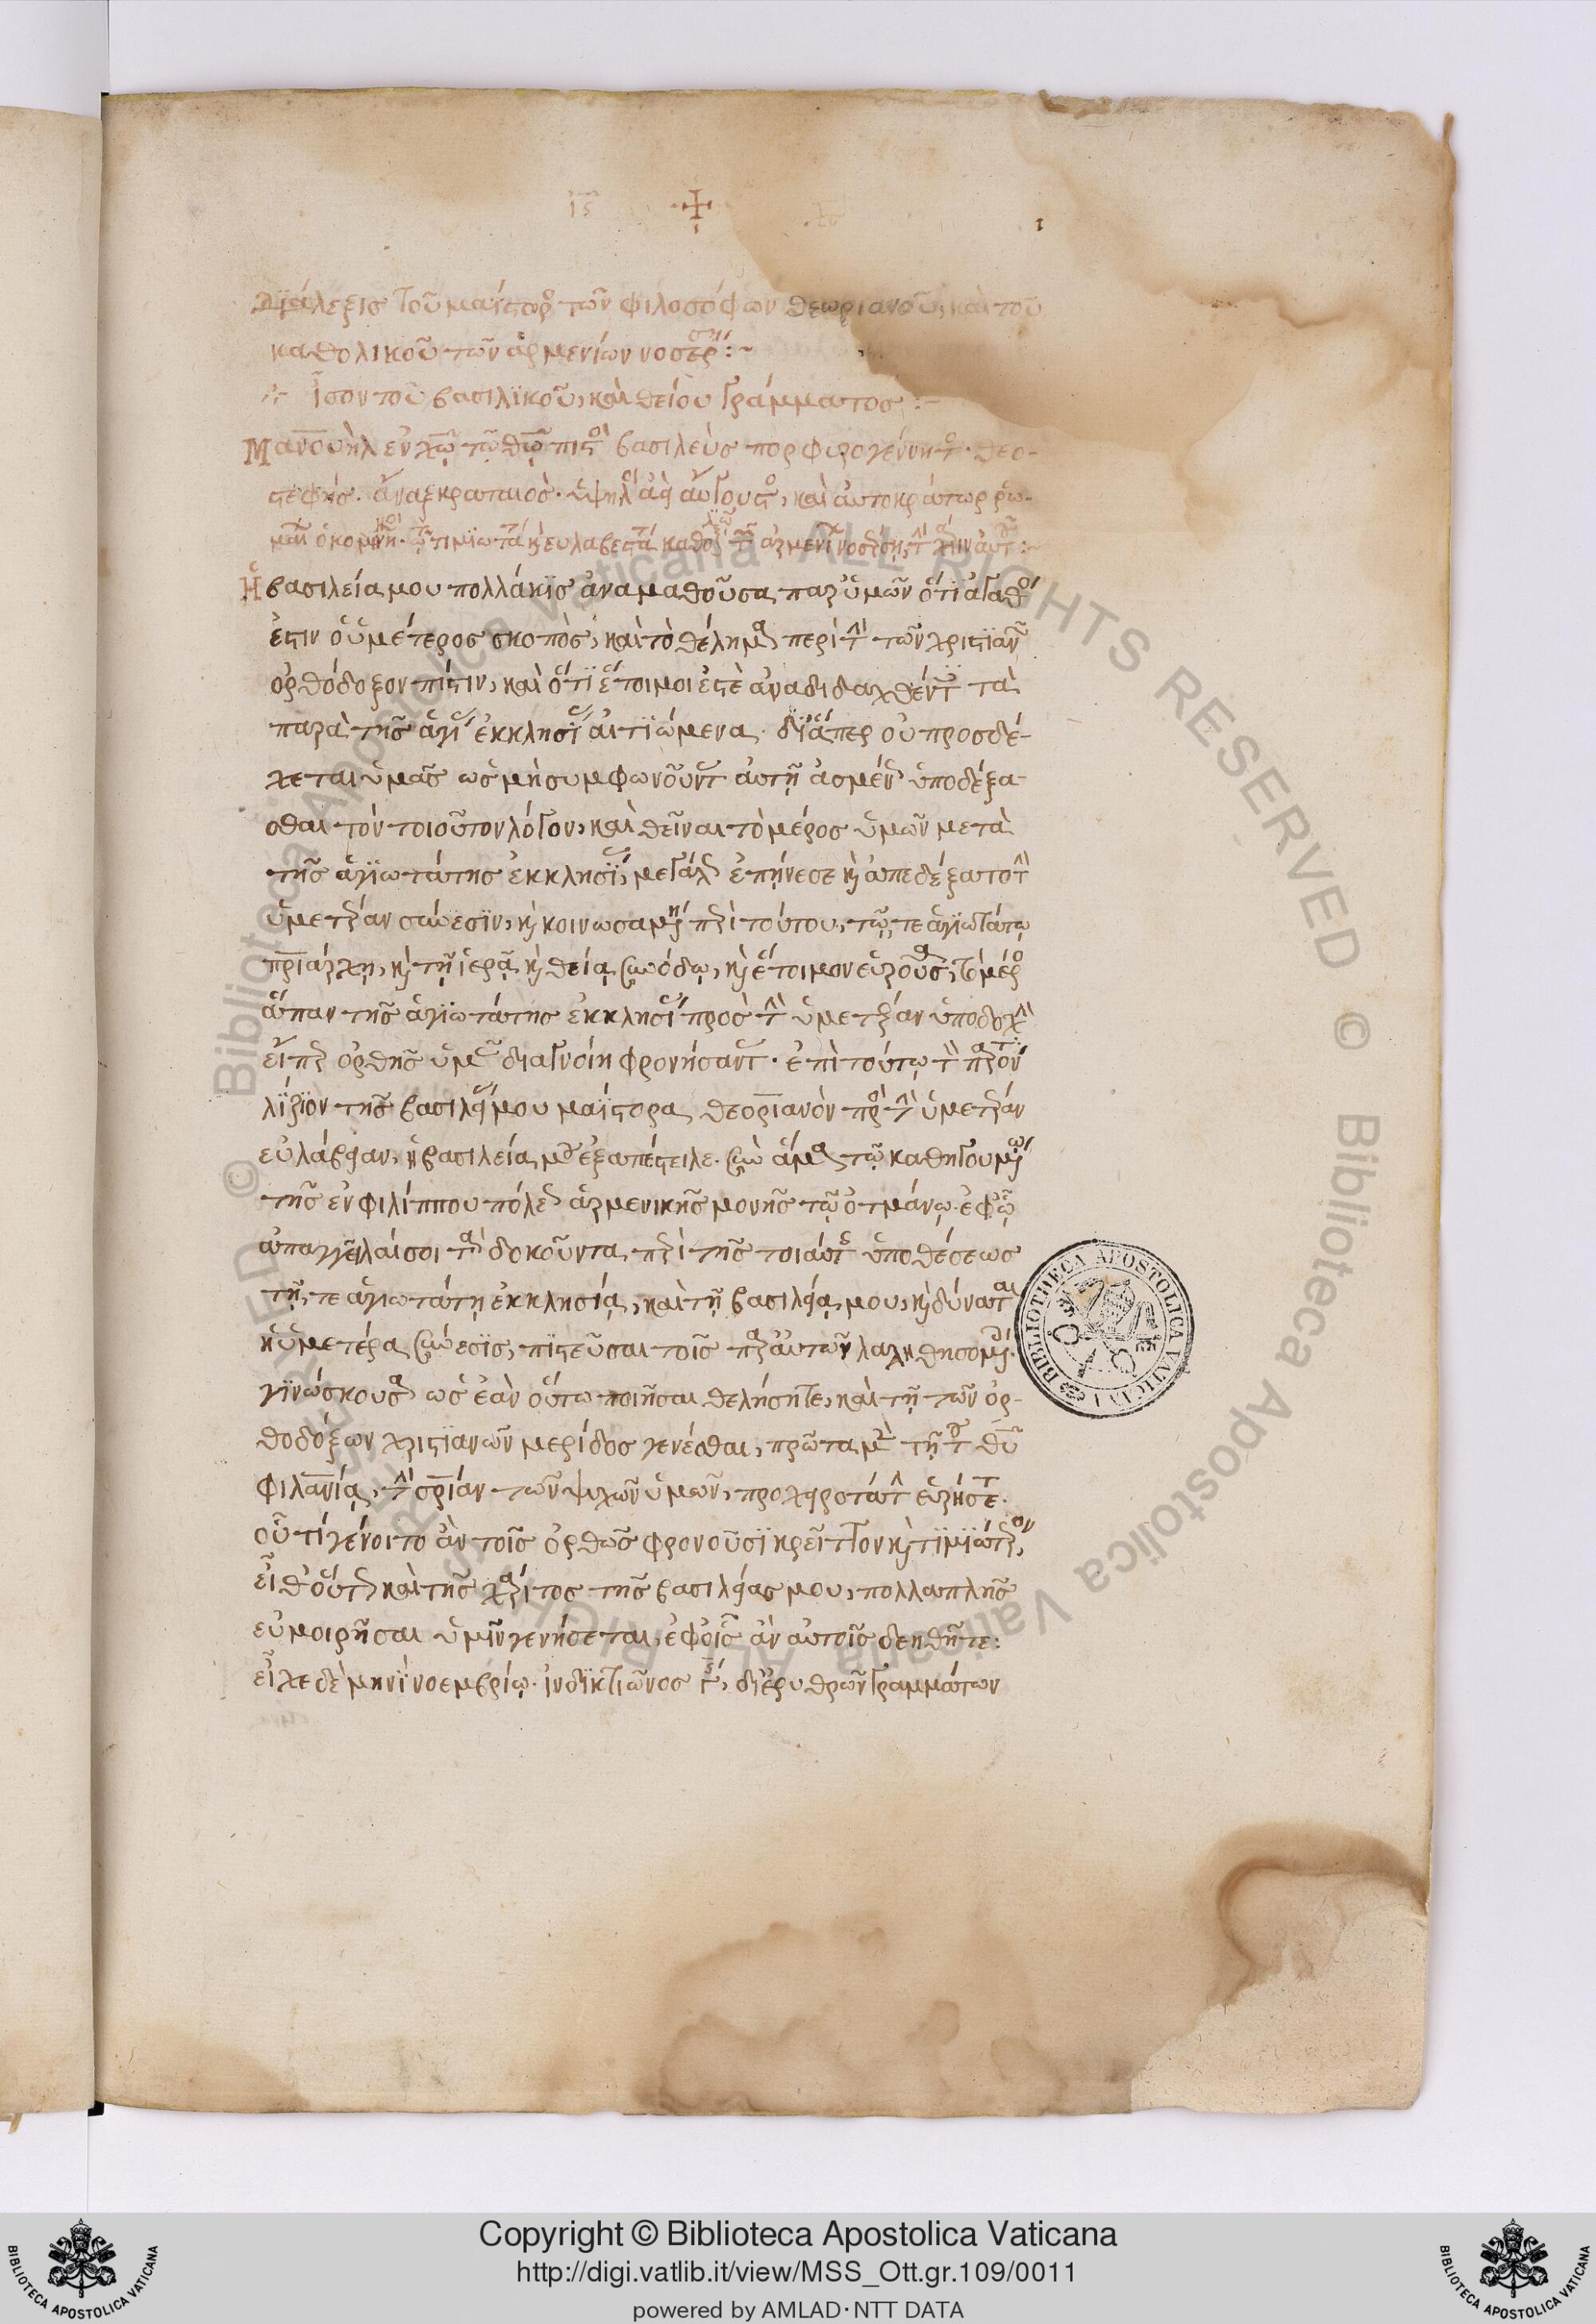 Διάλεξις τοῦ μαΐστορ τῶν φιλοσόφων θεωριανοῦ, καὶ τοῦ
καθολικοῦ τῶν ἀρμενίων νοσερσή :~
Ἶσον τοῦ βασιλϊκοῦ, καὶ θείου γράμματος :~
Μανουὴλ ἐν χῶ τῶ θῶ πιστὸ βασιλεὺς πορφυρογέννητο· θεο-
στεφὴς. ἄναξ κραταιὸς· ὑψηλὸ ἀεὶ αὔγουστο, καὶ αὐτοκράτωρ ῥω-
μαί ὁ κομνηνὸ. τῶ τιμϊωτά κὶ εὐλαβεστά καθολι τῶν ἀρμενί
Ἡ βασιλεία μου πολλάκϊς ἀναμαθοῦσα παρ ὑμῶν ὅτϊ ἀγαθὸ
ἐστιν ὁ ὑμέτερος σκοπὸς, καὶ τὸ θέλημα περὶ τὴν τῶν χριστϊανῶν
ὀρθόδοξον πίστιν, καὶ ὅτϊ ἕτοιμοι ἐστὲ ἀναδιδαχθέντ τὰ
παρὰ τῆς ἁγί ἐκκλησί αἰτϊώμενα· δϊ' ἅπερ οὐ προσδέ-
χεται ὑμᾶς ὡς μὴ συμφωνοῦντ αὐτῆ ἀσμέν ὑποδέξα-
σθαι τὸν τοιοῦτον λόγον, καὶ θεῖναι τὸ μέρος ὑμῶν μετὰ
τῆς ἁγϊωτάτης ἐκκλησί, μεγάλ ἐπήνεσε κὶ ἀπεδέξατο τὴν
ὑμετέραν σύνεσϊν, κὶ κοινωσαμένη περὶ τούτου, τῶ, τε ἁγϊωτάτω
πριάρχη, κὶ τῆ ἱερᾶ κὶ θεία συνόδω, κὶ ἕτοιμον εὑροῦσα τὸ μέρο
ἅπαν τῆς ἁγϊωτάτης ἐκκλησί πρὸς τὴν ὑμετέραν ὑποδοχὴν
εἴπερ ὀρθῆς ὑμεῖς διαγνοίη φρονήσαντ. ἐπὶ τούτω τὸν παρόντα
λίζϊον τῆς βασιλείας μου μαΐστορα θεοριανὸν πρὸς τὴν ὑμετέραν
εὐλάβειαν, ἡ βασιλεία μου ἐξαπέστειλε. σὺν ἅμα τῶ καθηγουμένω
τῆς ἐν φιλίππου πόλει ἀρμενικῆς μονῆς τῶ ὀτμάνω. ἐφ' ὧ
ἀπαγγεῖλαί σοι τὰ δοκοῦντα περὶ τῆς τοιαύτ ὑποθέσεως
τῆ, τε ἁγιωτάτη ἐκκλησία, καὶ τῆ βασιλεία μου, κὶ δύναται
ἡ ὑμετέρα σύνεσϊς, πϊστεῦσαι τοῖς παρ αὐτῶν λαληθησομένοις.
γϊνώσκουσα ὡς ἐὰν οὕτω ποιῆσαι θελήσητε, καὶ τῆ τῶν ὀρ-
θοδόξων χριστϊανῶν μερίδος γενέσθαι, πρῶτα μὲν τῆ τοῦ θῦ
φιλανία, τὴν σρίαν τῶν ψυχῶν ὑμῶν, προχειροτάτην εὑρήσετε.
οὗ τί γένοιτο ἂν τοῖς ὀρθῶς φρονοῦσϊ κρεῖττον κὶ τϊμϊώτερον,
εἶθ' οὕτως καὶ τῆς χάριτος τῆς βασιλείας μου, πολλαπλῆς
εὐμοιρῆσαι ὑμῖν γενήσεται, ἐφ' οἷς ἂν αὐτοῖς δεηθῆτε:
εἶχε δὲ μηνὶ νοεμβρίω. ἰνδϊκτιῶνος ς, δϊ' ἐρυθρῶν γραμμάτων
BIBLIOTHECA APOSTOLICA VATICANA
© Biblioteca Apostolica Vaticana ALL RIGHTS RESERVED © Biblioteca Apostolica Vaticana ALL RIGHTS RESERVED
Copyright © Biblioteca Apostolica Vaticana
http://digi.vatlib.it/view/MSS_Ott.gr.109/0011
powered by AMLAD·NTT DATA
BIBLIOTECA APOSTOLICA VATICANA
BIBLIOTECA APOSTOLICA VATICANA